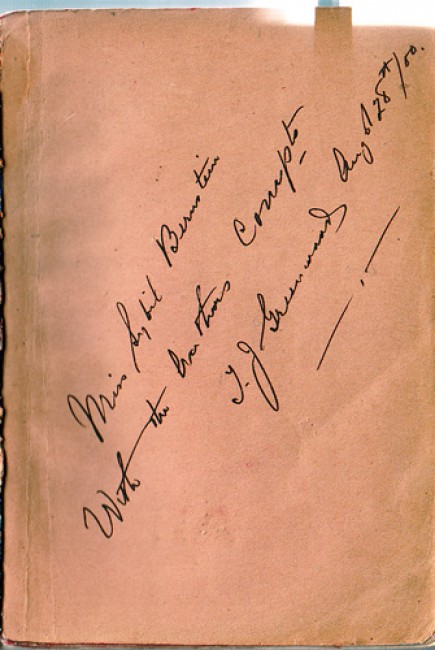 Miss Sybil Bernstein
With the Authors Compts
T. J. Greenwood Aug st 28th/00.